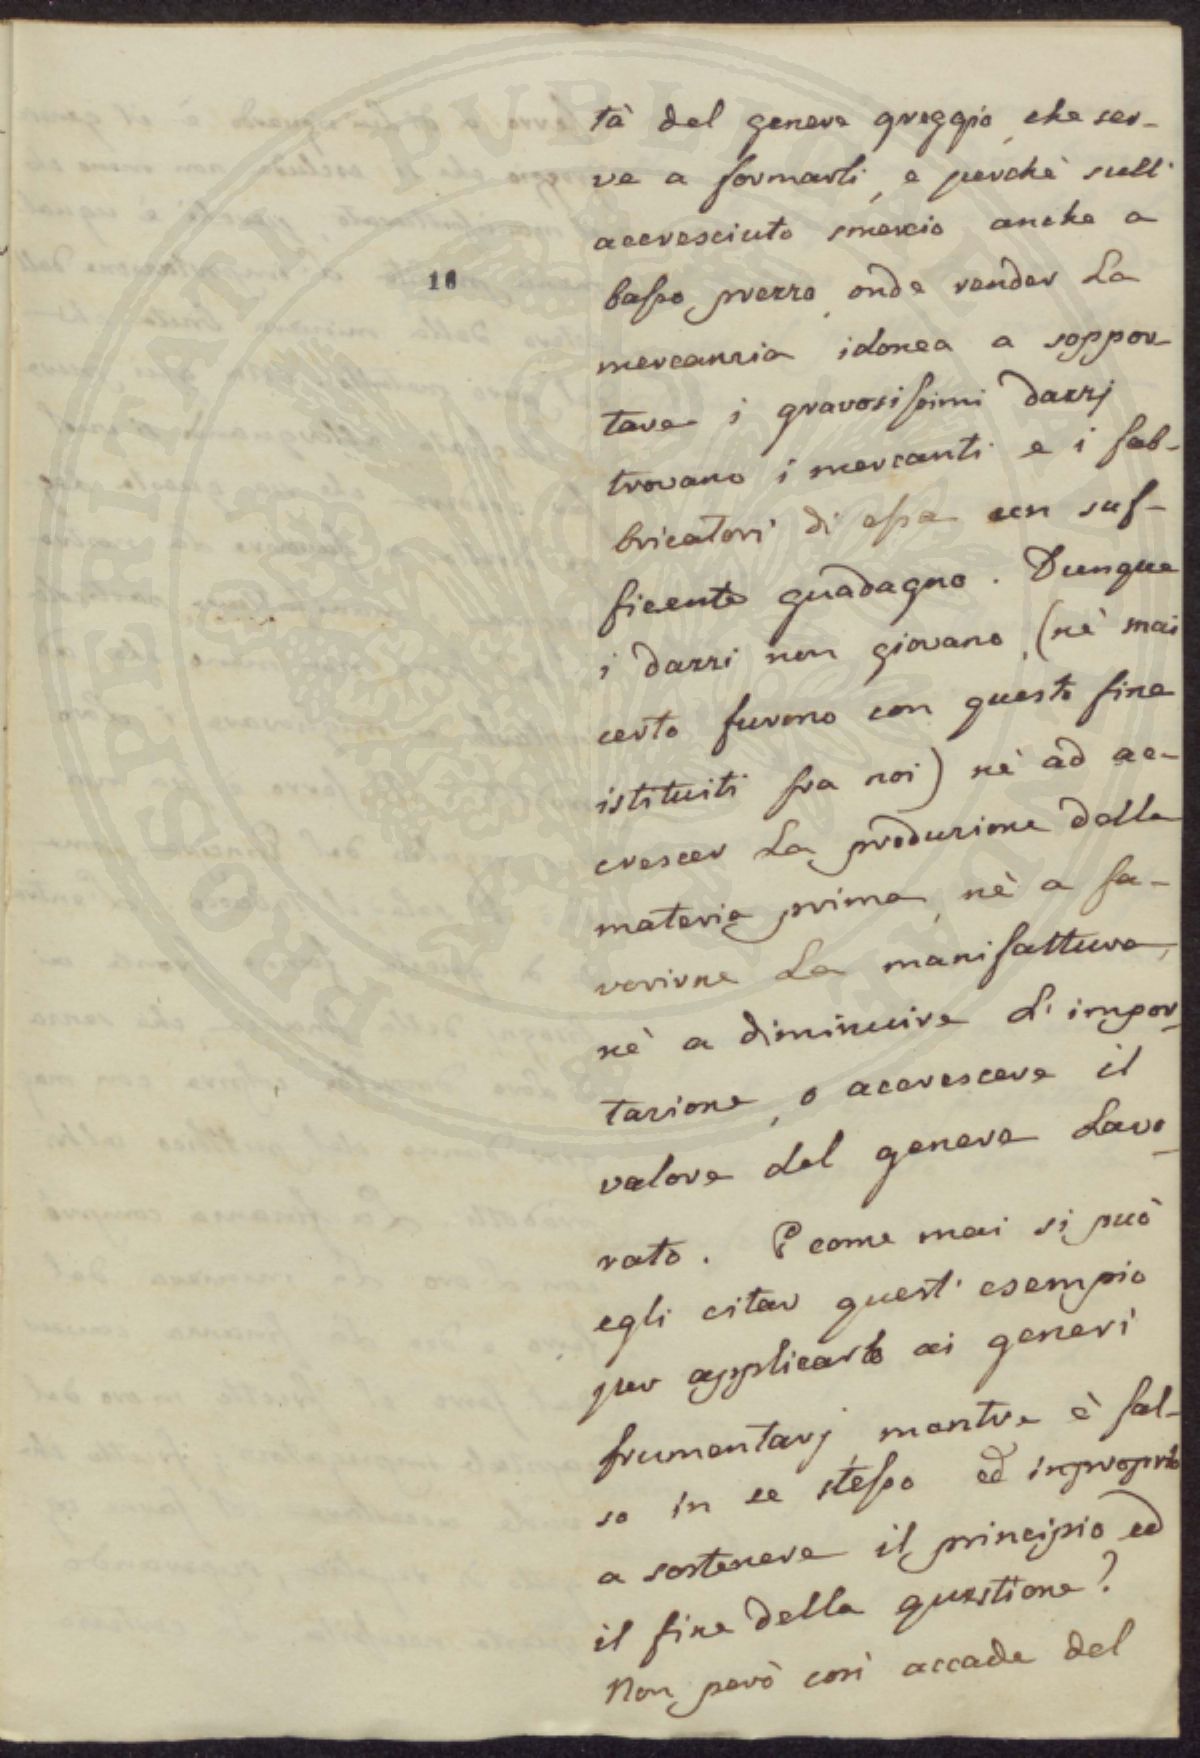 tà del genere greggio, che ser-
ve a formarli, e perchè sull'
accresciuto smercio anche a
basso prezzo, onde render la
mercanzia idonea a soppor-
tare i gravosissimi dazzj
trovano i mercanti e i fab-
bricatori di essa un suf-
ficente guadagno. Dunque
i dazzi non giovano, (nè mai
certo furono con questo fine
istituiti fra noi) nè ad ac-
crescer la produzione della
materia prima, nè a fa-
vorirne la manifattura,
nè a diminuire l'impor-
tazione, o accrescere il
valore del genere lavo-
rato. E come mai si può
egli citar quest'esempio
per applicarlo ai generi
frumentarj, mentre è fal-
so in se stesso ed improprio
a sostenere il principio ed
il fine della questione?
Non però così accade del
16
PROSPERITATI PVBLICAE